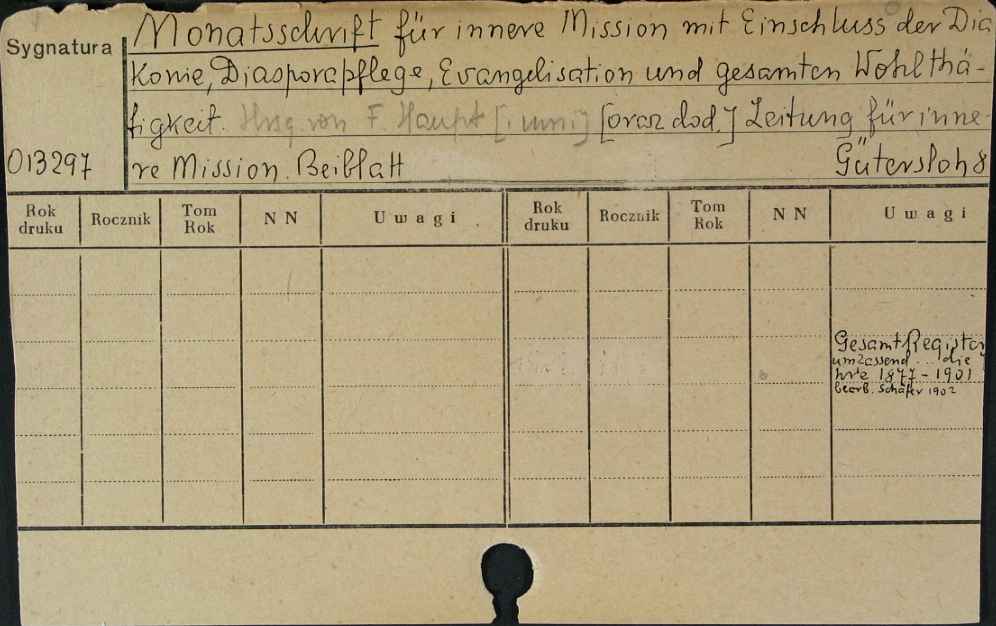 Sygnatura
Monatsschrift für innere Mission mit Einschluss der Dia
Konie, Diasporapflege, Evangelisation und gesamten Wohlthä-
tigkeit. Hrsg. von F. Haupt [i inni] [oraz dod.] Leitung für inne-
013297
re Mission. Beiblatt Gütersloh 8
Rok druku Rocznik Tom Rok N N Uwagi Rok druku Rocznik Tom Rok N N Uwagi
Gesamt Register
umfassend .. die
hre 1877 - 1901
bearb. Schäfer 1902